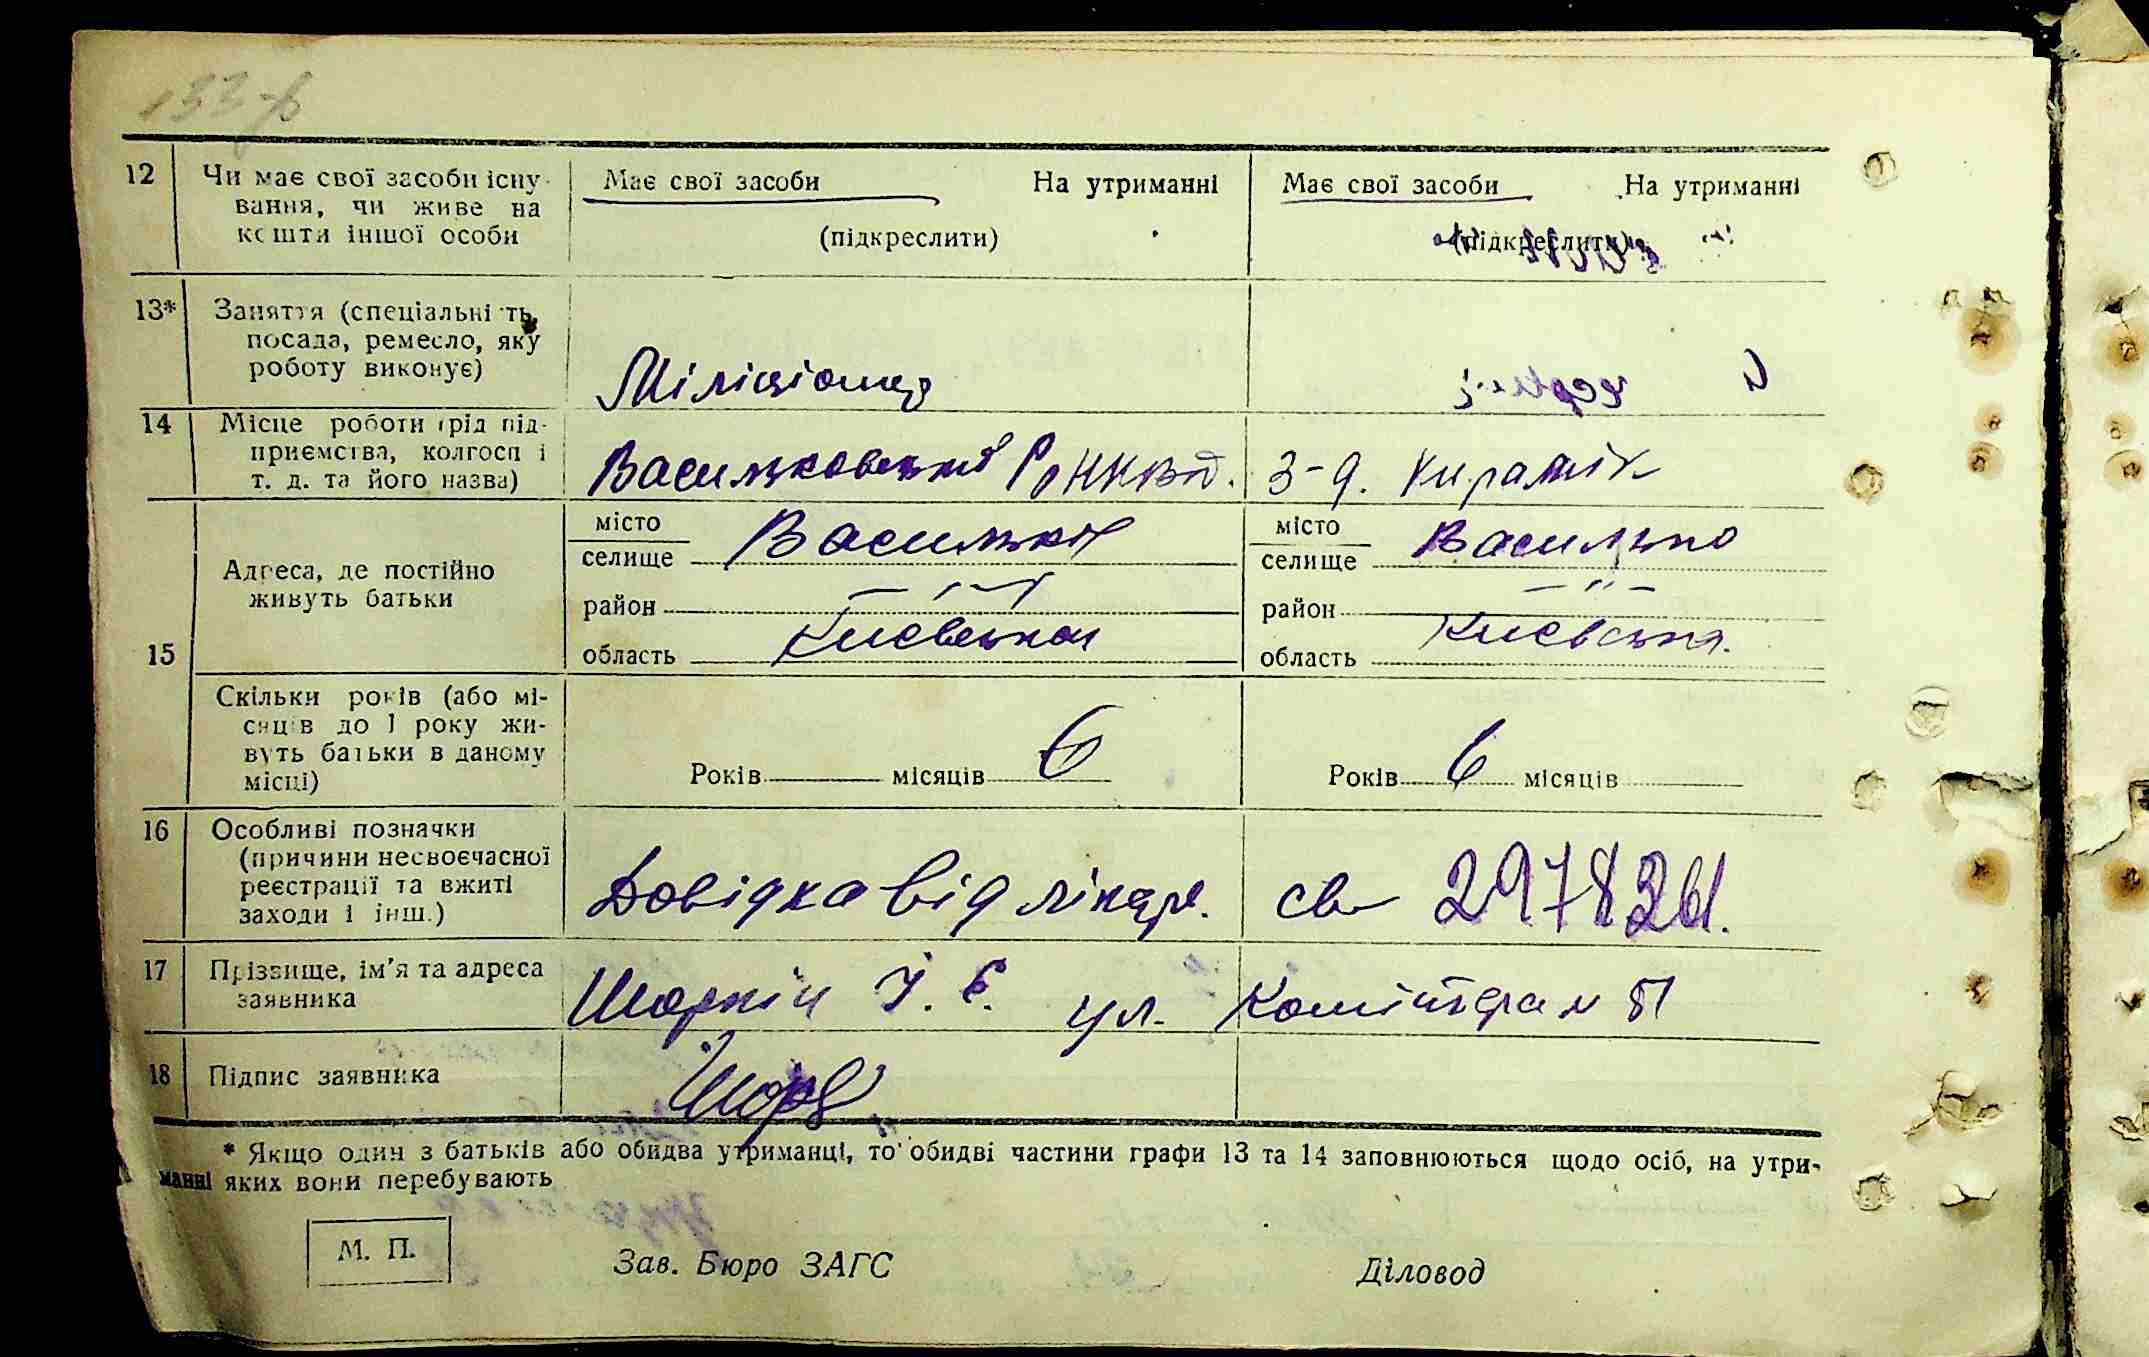 133-
12 Чи має свої засоби існу- Має свої засоби На утриманні Має свої засоби На утриманні
вання, чи живе на
кошти іншої особи (підкреслити) (підкреслити)
13* Заняття (спеціальність,
посада, ремесло, яку
роботу виконує) Міліціонер
14 Місце роботи (рід під-
приємства, колгосп і
т. д. та його назва) Васильковський Ро НКВД. З-д. Кирамік
15 Адреса, де постійно
живуть батьки
місто Васильків місто Василько
селище селище
район — " — район — " —
область Київська область Київська.
Скільки років (або мі-
сяців до 1 року жи-
вуть батьки в даному
місці) Років місяців 6 Років 6 місяців
16 Особливі позначки
(причини несвоєчасної
реєстрації та вжиті
заходи і інш.) Довідка від лікаря. св
17 Прізвище, ім'я та адреса
заявника І. Є. ул. Комінтерна 51
18 Підпис заявника
* Якщо один з батьків або обидва утриманці, то обидві частини графи 13 та 14 заповнюються щодо осіб, на утри-
манні яких вони перебувають
М. П. Зав. Бюро ЗАГС Діловод